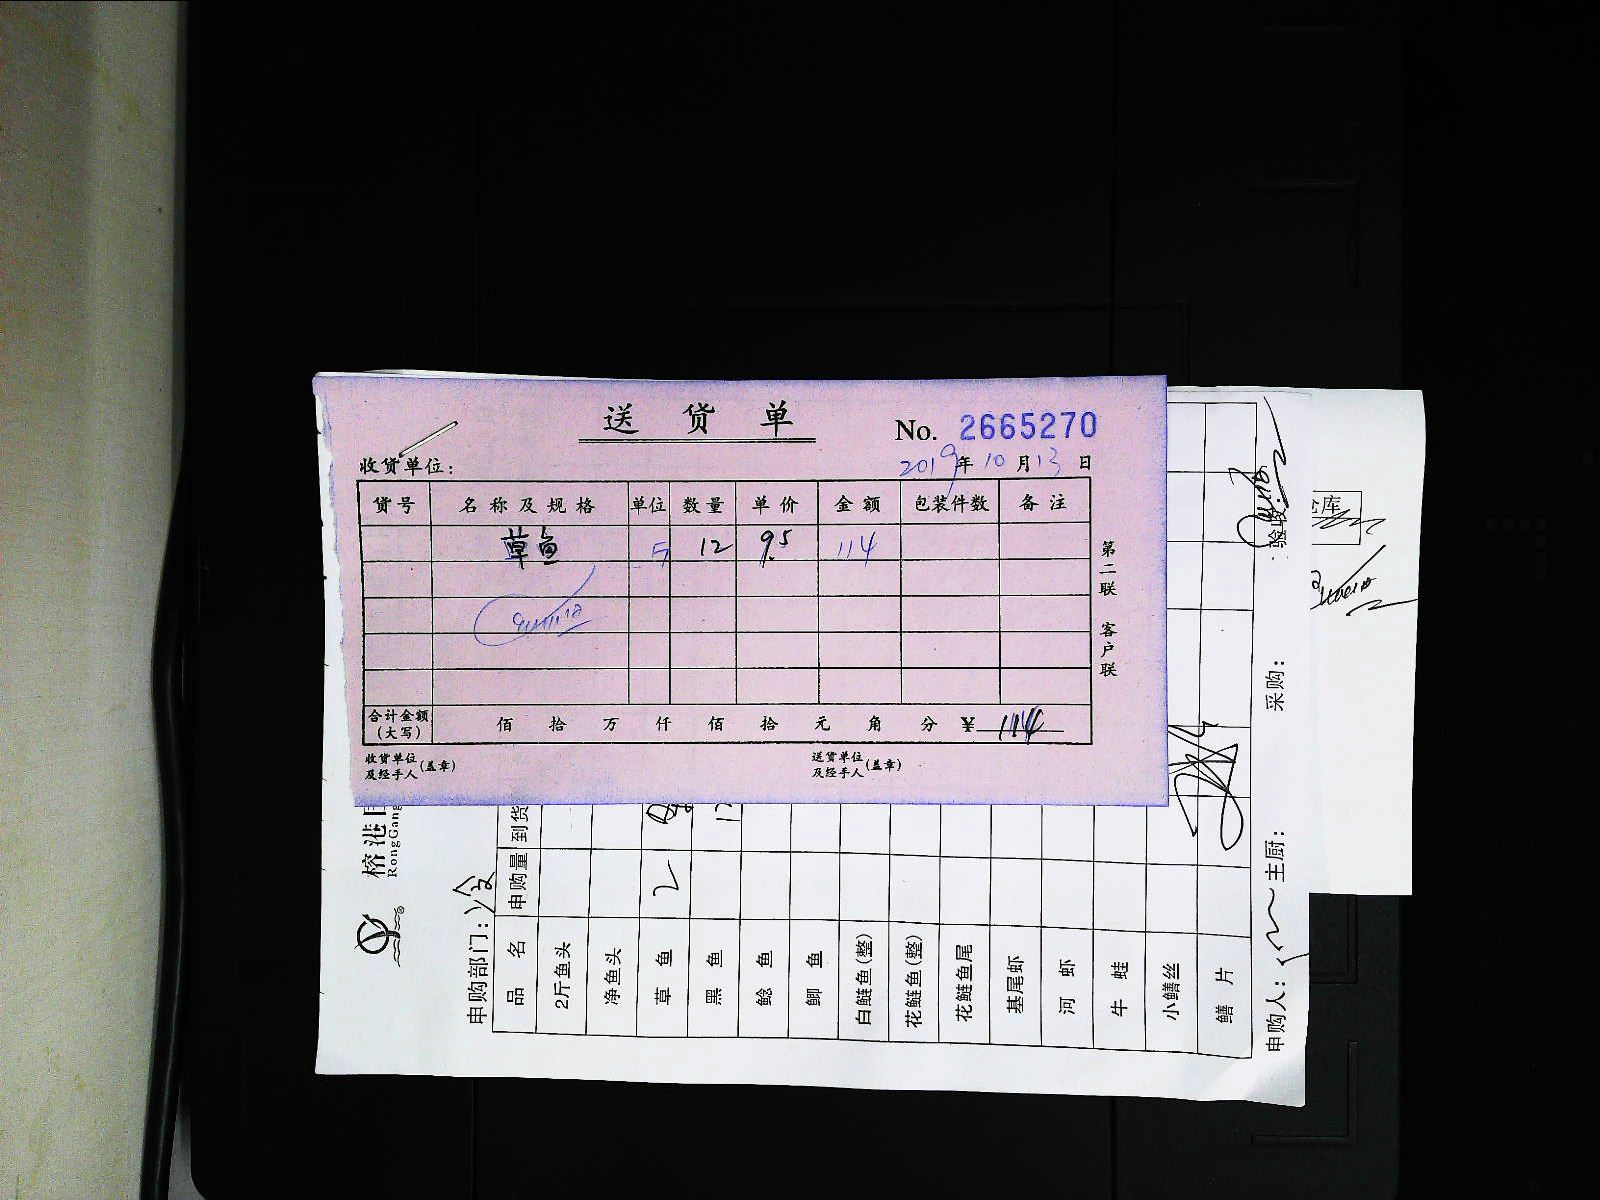 送货单
No. 2665270
收货单位：
2019年10月13日
货号 名称及规格 单位 数量 单价 金额 包装件数 备注
草鱼 斤 12 9.5 114
合计金额（大写） 佰 拾 万 仟 佰 拾 元 角 分 ¥ 114
收货单位及经手人（盖章） 送货单位及经手人（盖章）
第二联 客户联
榕港
RongGang
申购部门：
品名 申购量 到货
2斤鱼头
净鱼头
草鱼 2
黑鱼
鲶鱼
鲫鱼
白鲢鱼(整)
花鲢鱼(整)
花鲢鱼尾
基尾虾
河虾
牛蛙
小鳝丝
鳝片
申购人： 主厨： 采购： 验收：
仓库